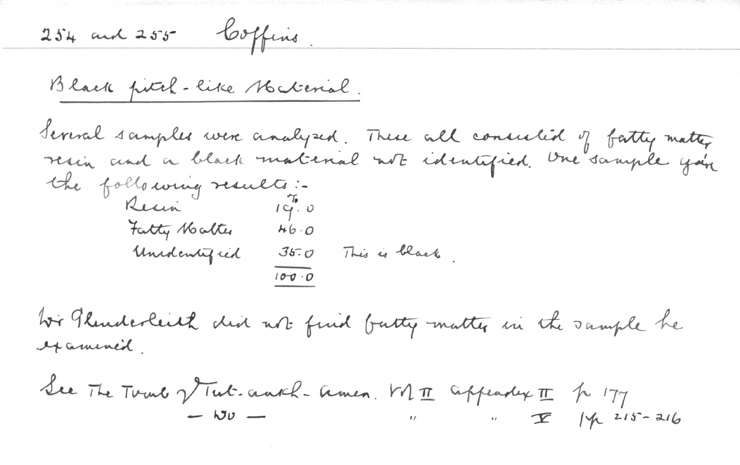 254 and 255 Coffins.
Black pitch-like Material.
Several samples were analyzed. These all consisted of fatty matter,
resin and a black material not identified. One sample gave
the following results:-
%
Resin 19.0
Fatty Matter 46.0
Unidentified 35.0 This is black.
100.0
Mr Plenderleith did not find fatty matter in the sample he
examined.
See The Tomb of Tut-ankh-Amen. Vol II appendex II p 177
— Do — " " V pp 215-216